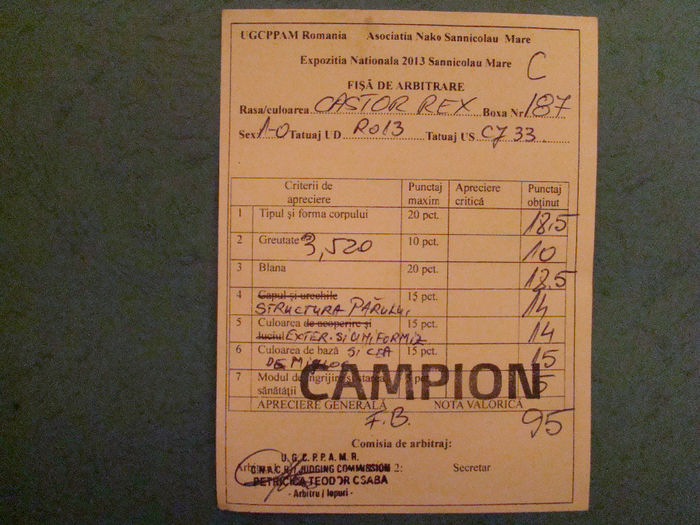 UGCPPAM Romania Asociatia Nako Sannicolau Mare
Expozitia Nationala 2013 Sannicolau Mare C
FIŞĂ DE ARBITRARE
Rasa/culoarea CASTOR REX Boxa Nr. 187
Sex 1-0 Tatuaj UD RO13 Tatuaj US CJ 33
Criterii de apreciere Punctaj maxim Apreciere critică Punctaj obţinut
1 Tipul şi forma corpului 20 pct. 18,5
2 Greutate 3,520 10 pct. 10
3 Blana 20 pct. 18,5
4 Capul şi urechile 15 pct. 14
STRUCTURA PĂRULUI
5 Culoarea de acoperire şi 15 pct. 14
luciul EXTER. SI UNIFORMIZ
6 Culoarea de bază SI CEA 15 pct. 15
DE
7 Modul de îngrijire şi starea 5 pct. 5
sănătăţii
CAMPION
APRECIERE GENERALĂ NOTA VALORICĂ
F.B. 95
Comisia de arbitraj:
U.G.C.P.P.A.M.R.
JUDGING COMMISSION 2: Secretar
TEODOR CSABA
- Arbitru / Iepuri -